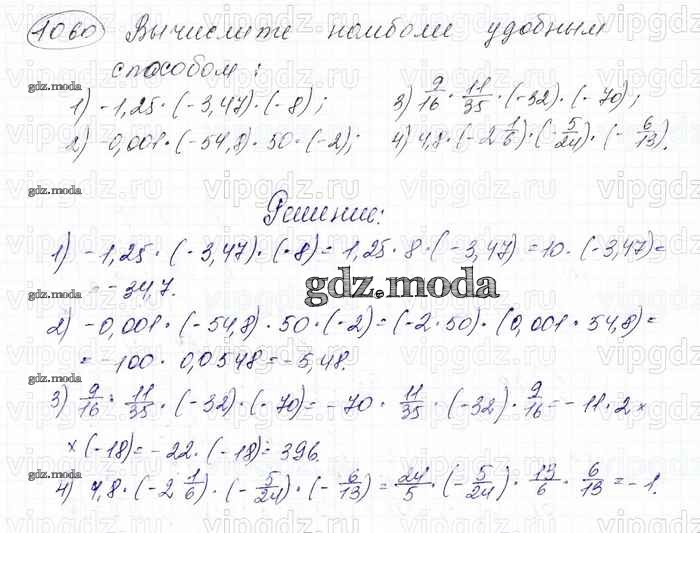 1060 Вычислите наиболе удобным
способом:
1) -1,25 · (-3,47) · (-8); 3) 9/16 · 11/35 · (-32) · (-70);
2) -0,001 · (-54,8) · 50 · (-2); 4) 4,8 · (-2 1/6) · (-5/24) · (-6/13).
Решение:
1) -1,25 · (-3,47) · (-8) = 1,25 · 8 · (-3,47) = 10 · (-3,47) =
= -34,7.
2) -0,001 · (-54,8) · 50 · (-2) = (-2 · 50) · (0,001 · 54,8) =
= -100 · 0,0548 = -5,48.
3) 9/16 · 11/35 · (-32) · (-70) = -70 · 11/35 · (-32) · 9/16 = -11 · 2 ×
× (-18) = -22 · (-18) = 396.
4) 4,8 · (-2 1/6) · (-5/24) · (-6/13) = 24/5 · (-5/24) · 13/6 · 6/13 = -1.
gdz.moda
gdz.moda
gdz.moda
gdz.moda
gdz.moda
gdz.moda
gdz.moda
gdz.moda
vipgdz.ru